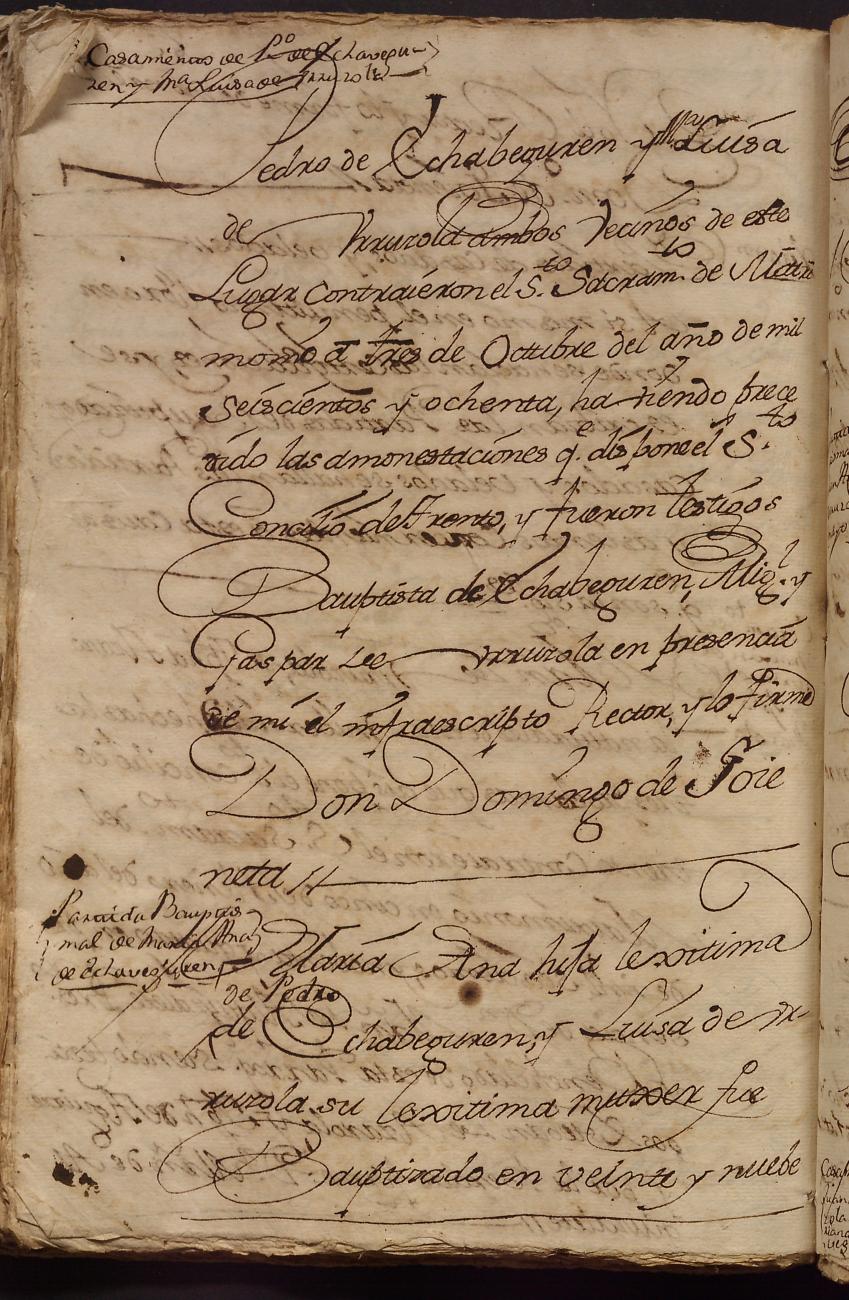 Casamentos de P.º de Echavegu-
ren y M.ª Luisa de Irruzola
Pedro de Echabeguren y M.ª Luisa
de Yrruzola ambos Vecinos de este
Lugar contraieron el S.to Sacram.to de Matri
monio a tres de Octubre del año de mil
seiscientos y ochenta, haviendo prece
dido las amonestaciones q.e dispone el S.to
Concilio de Trento, y fueron testigos
Bauptista de Echabeguren, Mig.l y
Gaspar de Yrruzola en presencia
de mi el infraescripto Rector, y lo firmé
Don Domingo de Goie
neta //
Partida Bauptis-
mal de Maria Ana
de Echaveguren
Maria Ana hija lexitima
de Pedro
de Echabeguren, y Luisa de Yr-
ruzola su lexitima muxer fue
Bauptizado en veinte y nuebe